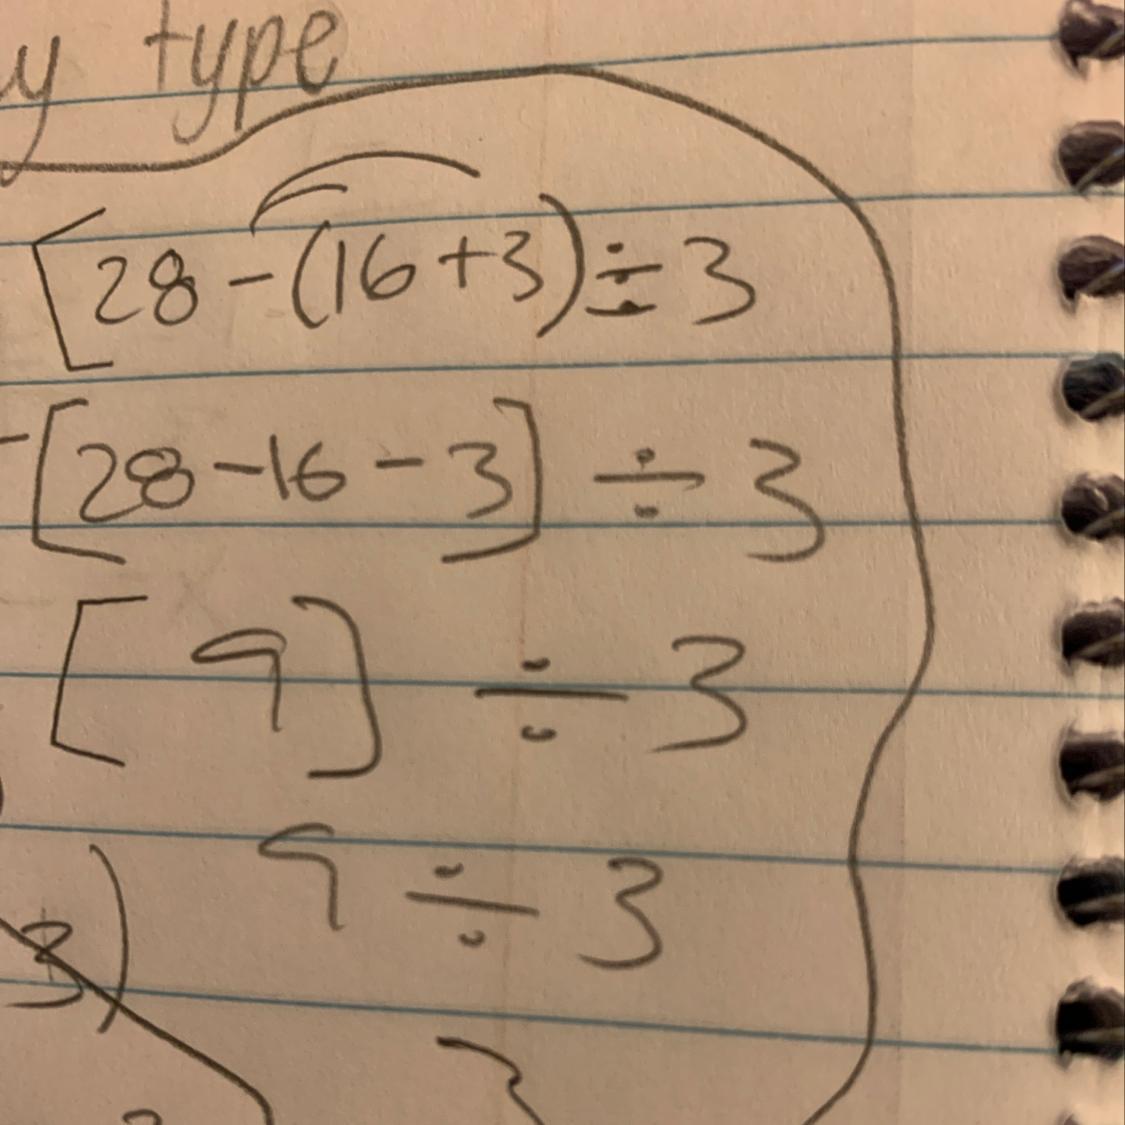 y type
[28-(16+3)÷3
-[28-16-3]÷3
[9]÷3
9÷3
3)
3